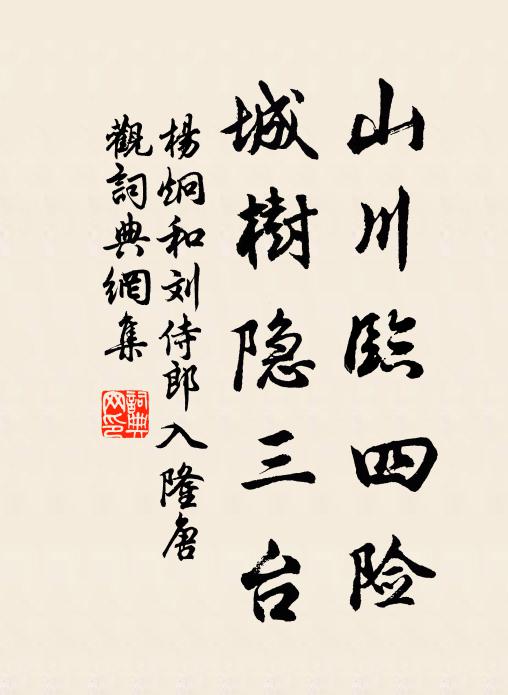 山川臨四险
城樹隐三台
楊炯和刘侍郎入隆唐
觀詞典網集
詞典网印